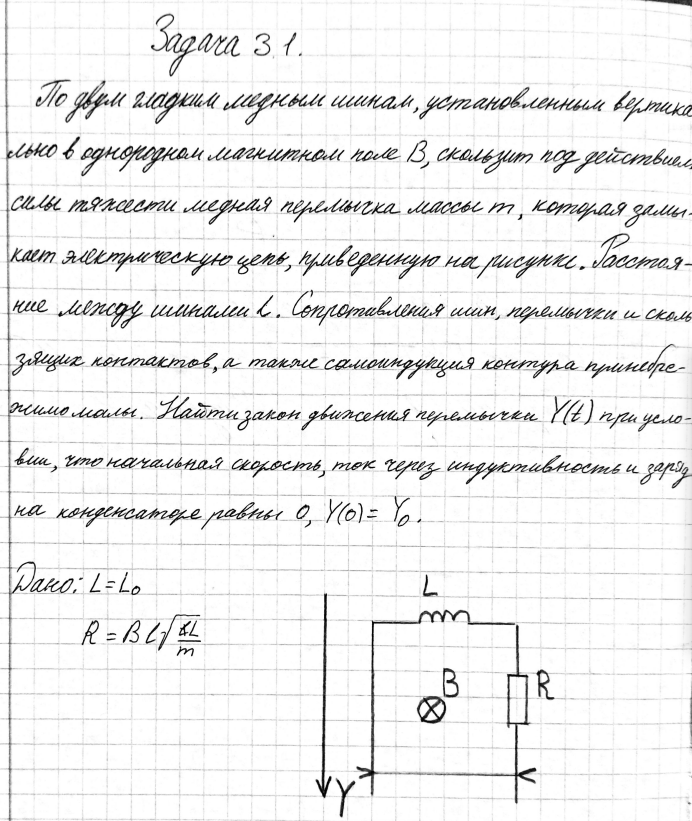 Задача 3.1.
По двум гладким медным шинам, установленным вертика
льно в однородном магнитном поле B, скользит под действием
силы тяжести медная перемычка массы m, которая замы-
кает электрическую цепь, приведенную на рисунке. Расстоя-
ние между шинами l. Сопротивления шин, перемычки и сколь
зящих контактов, а также самоиндукция контура пренебре-
жимо малы. Найти закон движения перемычки Y(t) при усло-
вии, что начальная скорость, ток через индуктивность и заряд
на конденсаторе равны 0, Y(0) = Y₀.
Дано: L = L₀
R = Bl√(L/m)
L
B
R
Y